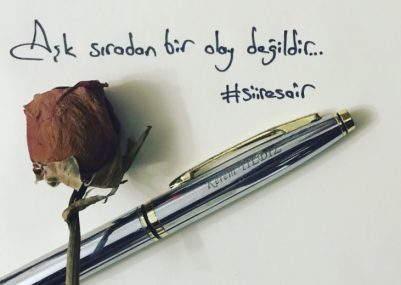 Aşk sıradan bir olay değildir...
#siiresair
Kerem